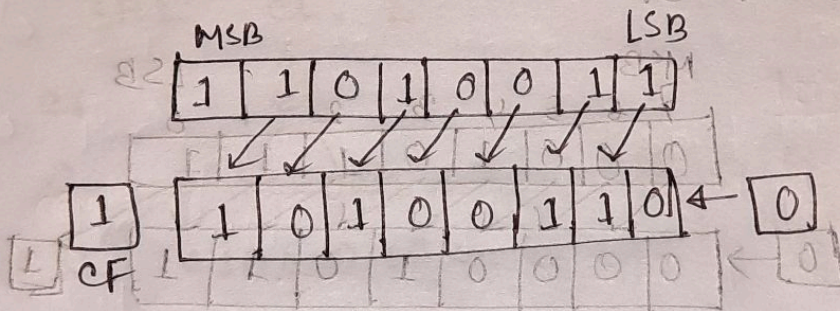 MSB LSB
1 1 0 1 0 0 1 1
1 1 0 1 0 0 1 1 0 0
CF